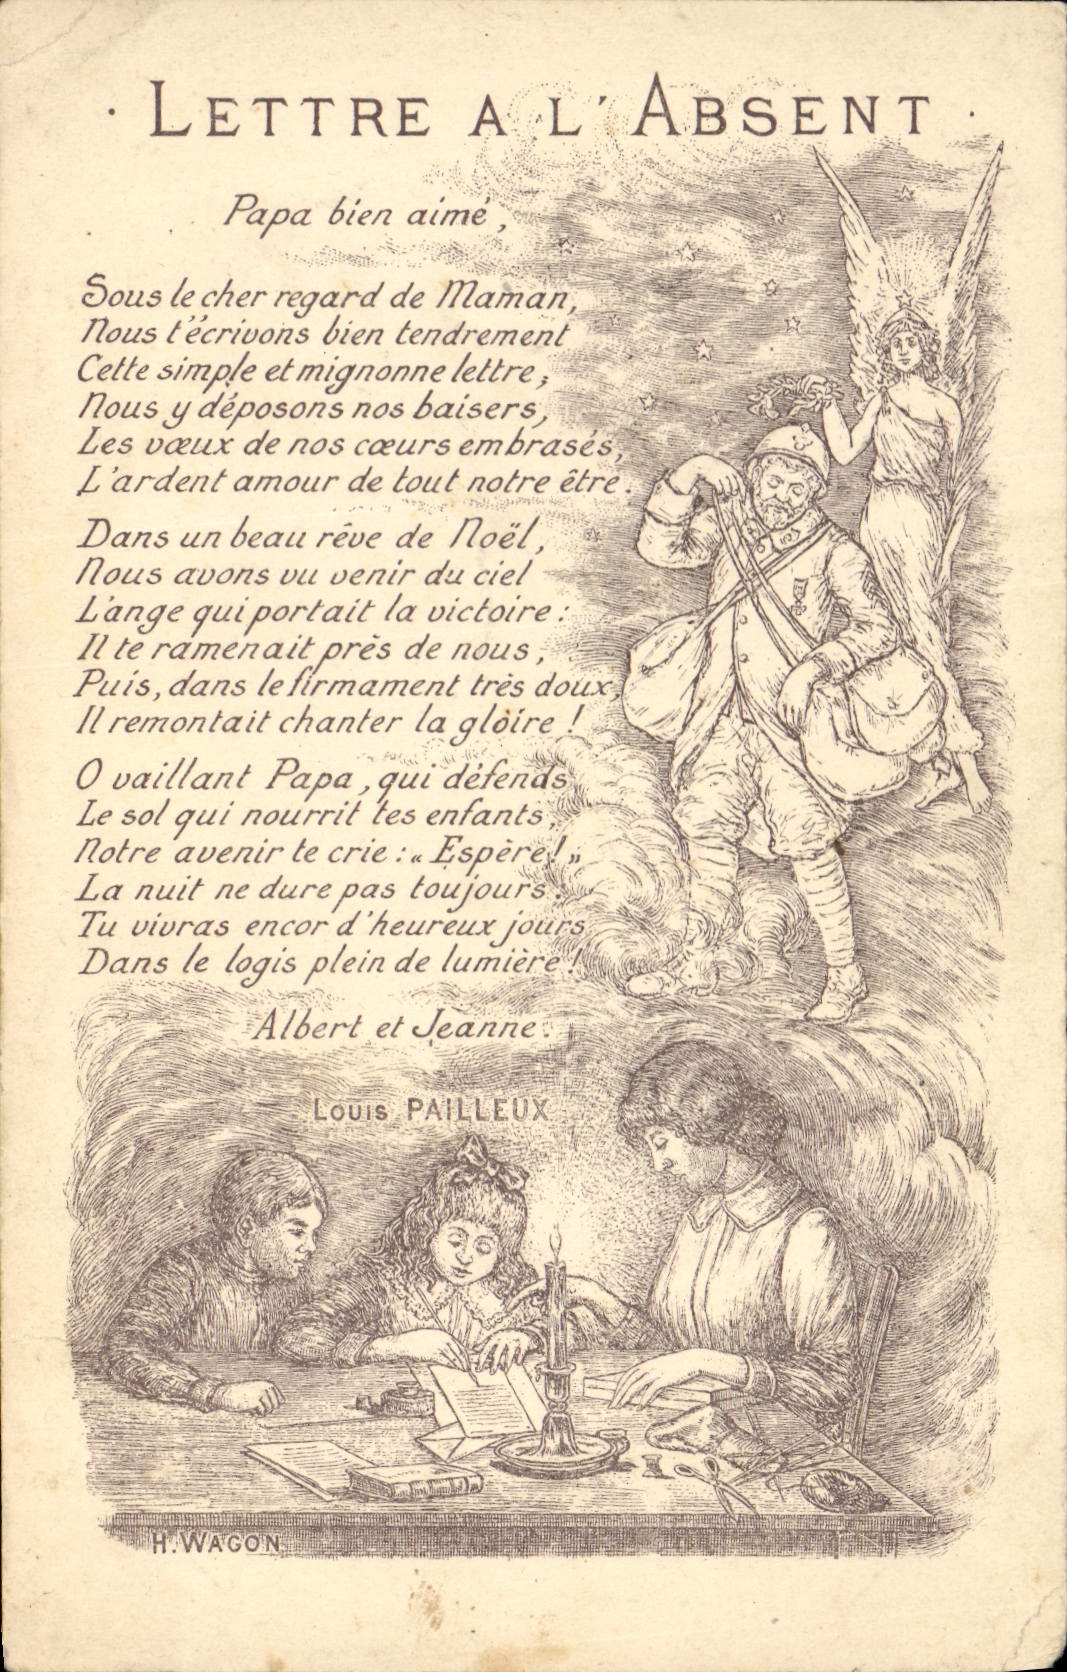 · LETTRE A L'ABSENT ·
Papa bien aimé,
Sous le cher regard de Maman,
Nous t'écrivons bien tendrement
Cette simple et mignonne lettre;
Nous y déposons nos baisers,
Les vœux de nos cœurs embrasés,
L'ardent amour de tout notre être.
Dans un beau rêve de Noël,
Nous avons vu venir du ciel
L'ange qui portait la victoire :
Il te ramenait près de nous,
Puis, dans le firmament très doux,
Il remontait chanter la gloire !
O vaillant Papa, qui défends
Le sol qui nourrit tes enfants,
Notre avenir te crie : « Espère ! »
La nuit ne dure pas toujours :
Tu vivras encor d'heureux jours
Dans le logis plein de lumière !
Albert et Jeanne.
Louis PAILLEUX
H. WAGON